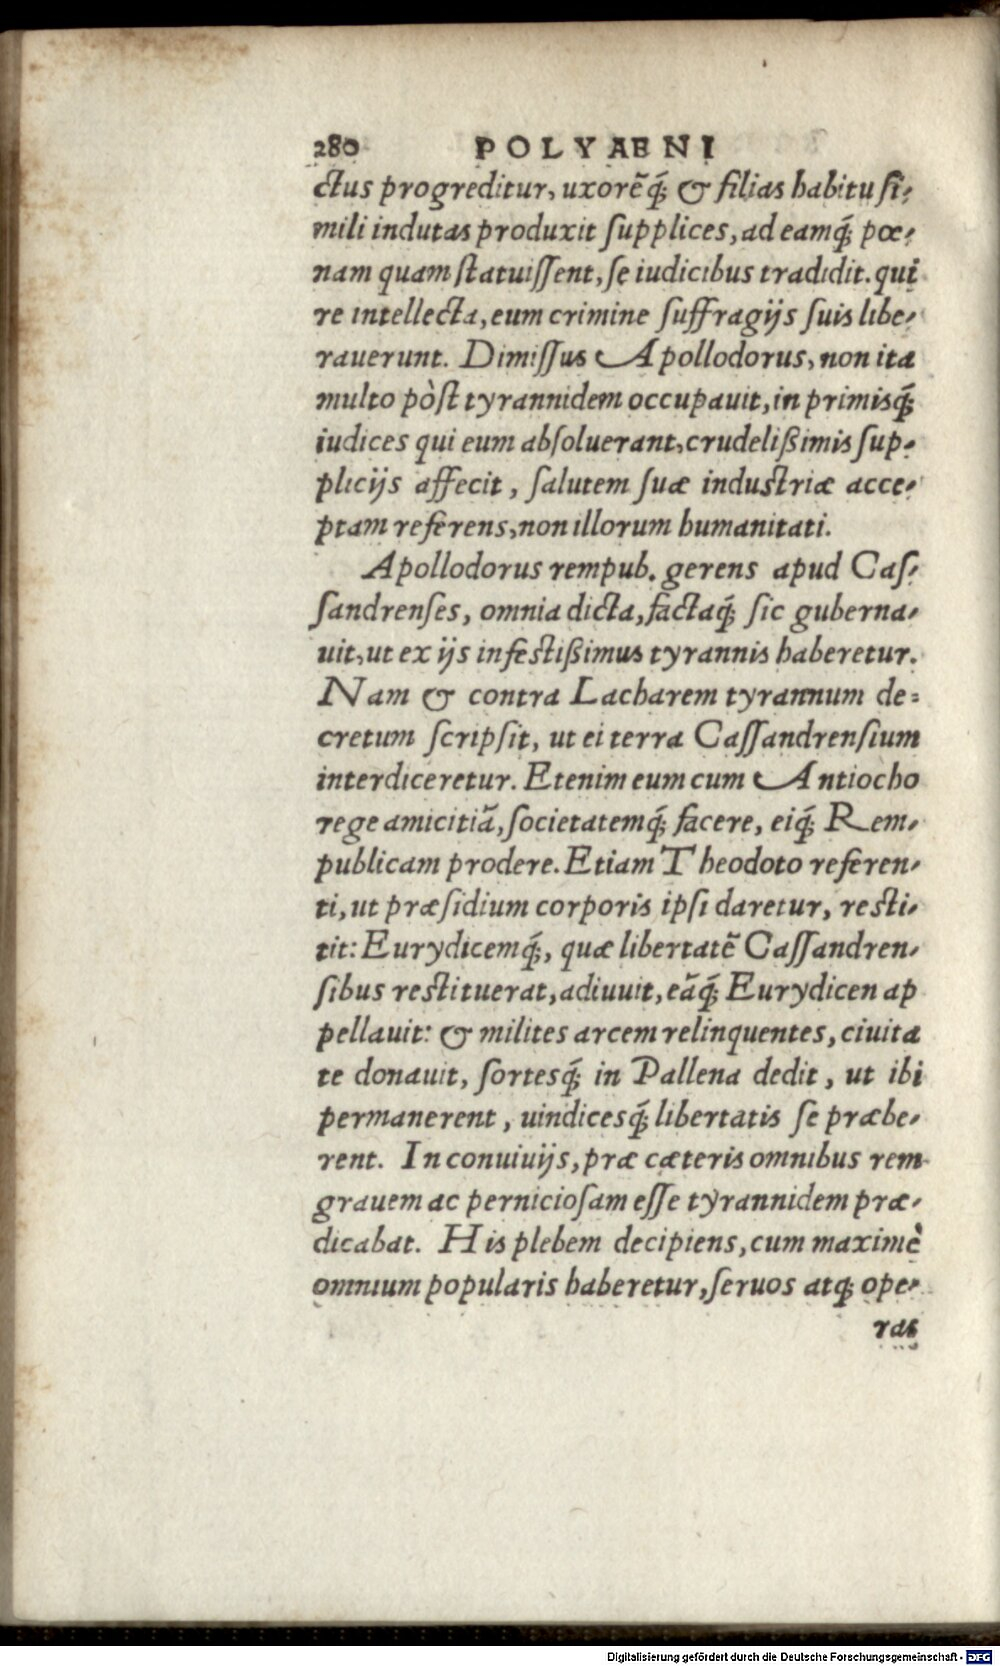 280 POLYAENI
ctus progreditur, uxorẽq́; & filias habitu si-
mili indutas produxit supplices, ad eamq́; pœ-
nam quam statuissent, se iudicibus tradidit. qui
re intellecta, eum crimine suffragijs suis libe-
rauerunt. Dimissus Apollodorus, non ita
multo pòst tyrannidem occupauit, in primisq́;
iudices qui eum absoluerant, crudelißimis sup-
plicijs affecit, salutem suæ industriæ acce-
ptam referens, non illorum humanitati.
Apollodorus rempub. gerens apud Cas-
sandrenses, omnia dicta, factaq́; sic guberna-
uit, ut ex ijs infestißimus tyrannis haberetur.
Nam & contra Lacharem tyrannum de-
cretum scripsit, ut ei terra Cassandrensium
interdiceretur. Etenim eum cum Antiocho
rege amicitiã, societatemq́; facere, eiq́; Rem-
publicam prodere. Etiam Theodoto referen-
ti, ut præsidium corporis ipsi daretur, resti-
tit: Eurydicemq́;, quæ libertatẽ Cassandren-
sibus restituerat, adiuuit, eãq́; Eurydicen ap
pellauit: & milites arcem relinquentes, ciuita
te donauit, sortesq́; in Pallena dedit, ut ibi
permanerent, uindicesq́; libertatis se præbe-
rent. In conuiuijs, præ cæteris omnibus rem
grauem ac perniciosam esse tyrannidem præ-
dicabat. His plebem decipiens, cum maximè
omnium popularis haberetur, seruos atq; ope-
ras
Digitalisierung gefördert durch die Deutsche Forschungsgemeinschaft - DFG